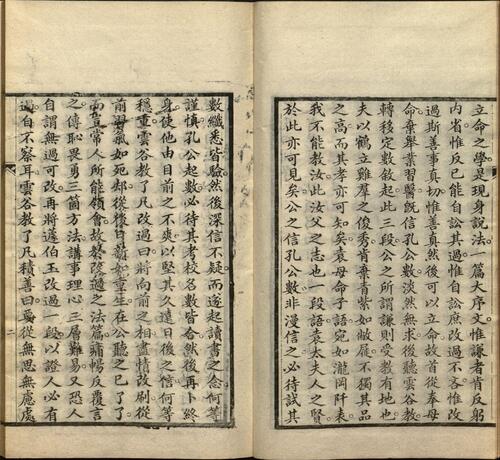 立命之學是現身說法一篇大序文惟謙者肯反躬
內省惟反己能自訟其過惟自訟庶改過不吝惟改
過斯善事真切惟善真然後可以立命故首從奉母
命棄舉業習醫旣信孔公數淡然無求後聽雲谷教
轉移定數敘起此三段公之所謂謙則受教有地也
夫以鶴立雞羣之俊秀肯棄青紫如敝屣不獨其品
之高而其孝亦可知矣袁母命子語宛如瀧岡阡表
我不能教汝此汝父之志也一段語袁太夫人之賢
於此亦可見矣公之信孔公數非漫信之必待試其
數纖悉皆驗然後深信不疑而遂起讀書之念何等
謹慎孔公起數必待其考校名數皆合然後再卜終
身使他由目前之不爽以堅其久遠日後之信何等
穩重雲谷教了凡改過曰將向前之相盡情改刷從
前習氣如死却從後日新如重生在公聽之已了了
而豈常人所能領會故發改過之法篇痛暢反覆言
之傳恥畏勇三箇方法講事理心三層難易又恐人
自謂無過可改再將蘧伯玉改過一段以證人必有
過自不察耳雲谷教了凡積善曰從無思無慮處
二